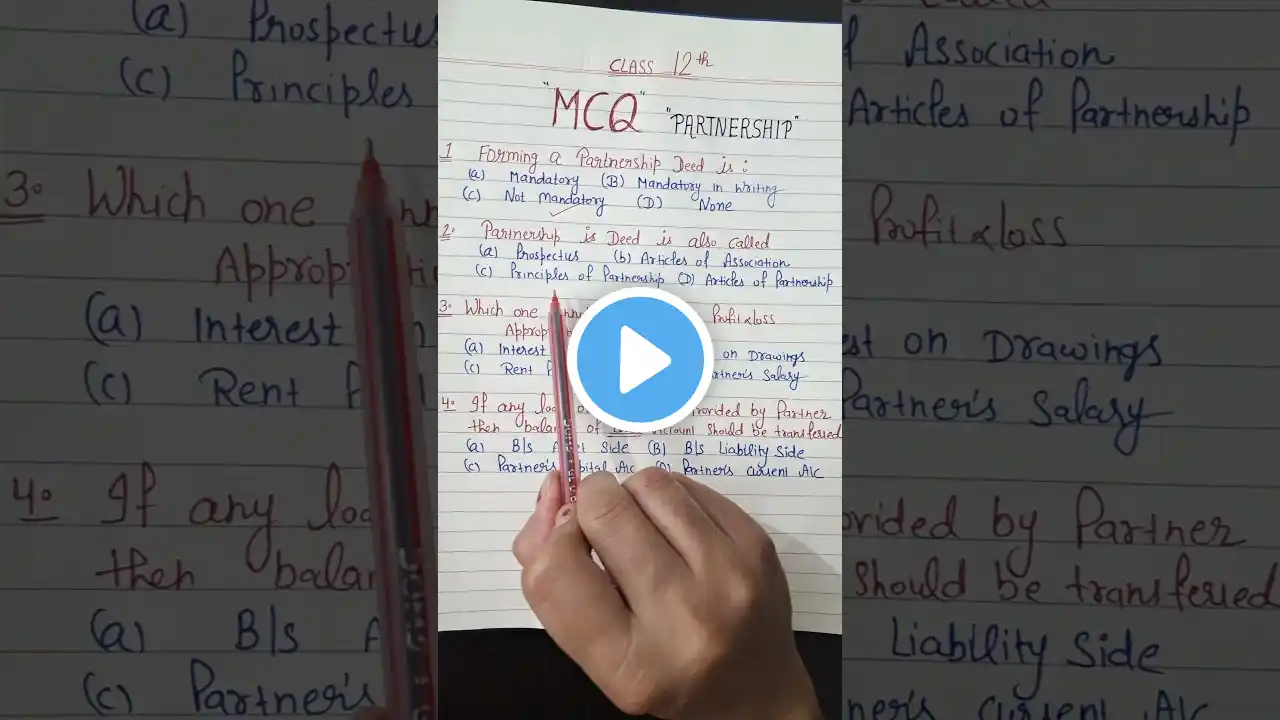 CLASS 12th
"MCQ" "PARTNERSHIP"
1 Forming a Partnership Deed is :
(a) Mandatory (B) Mandatory in writing
(C) Not Mandatory (D) None
2. Partnership is Deed is also called
(a) Prospectus (b) Articles of Association
(c) Principles of Partnership (D) Articles of Partnership
3. Which one Profit & loss
(a) Interest on Drawings
(C) Rent Partner's Salary
4. If any by Partner
then of Account should be transferred
(a) B/s Side (B) B/s Liability Side
(C) Partner's A/c (D) Partner's current A/c